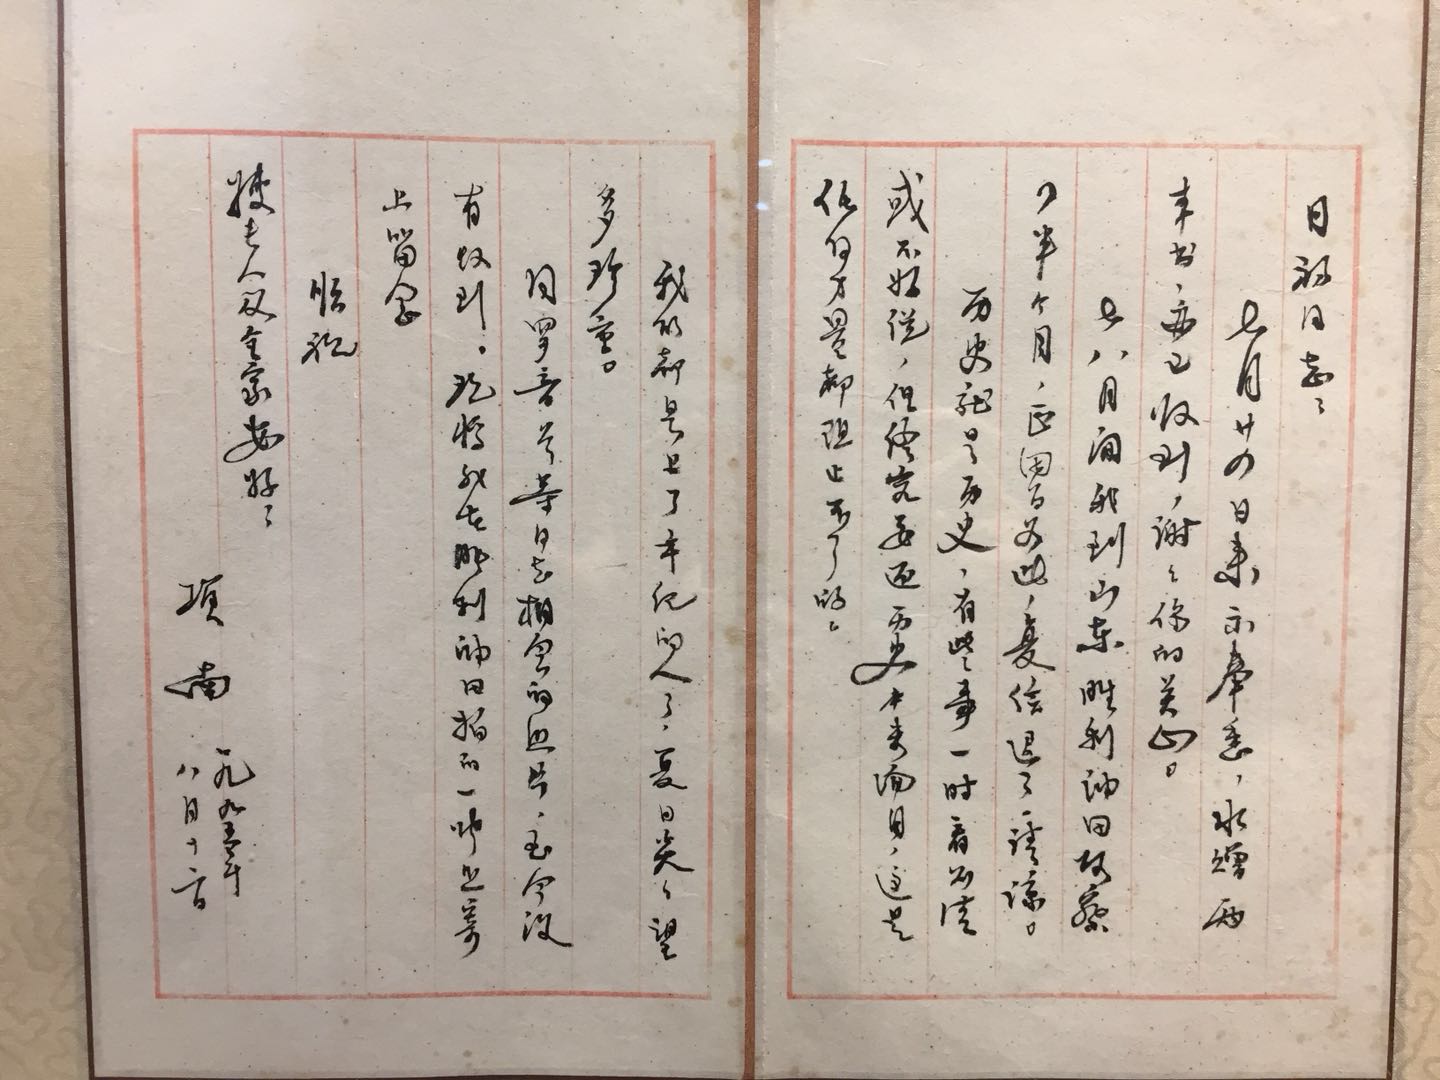 日初同志：
七月廿四日来示奉悉，水赠两
本书，亦已收到，谢谢你的关心。
七八月间我到山东胜利油田考察
了半个月，正因为此，复信迟了，请谅。
历史就是历史，有些事一时看不清
或不好说，但终究要还历史本来面目，这是
任何力量都阻止不了的。
我们都是上了年纪的人了，夏日炎炎，望
多珍重。
同罗音 等同志相会的照片，至今没
有收到。现将我在胜利油田拍的一张照片寄
上留念
顺祝
老人及全家安好！
项南
一九九五年
八月十二日